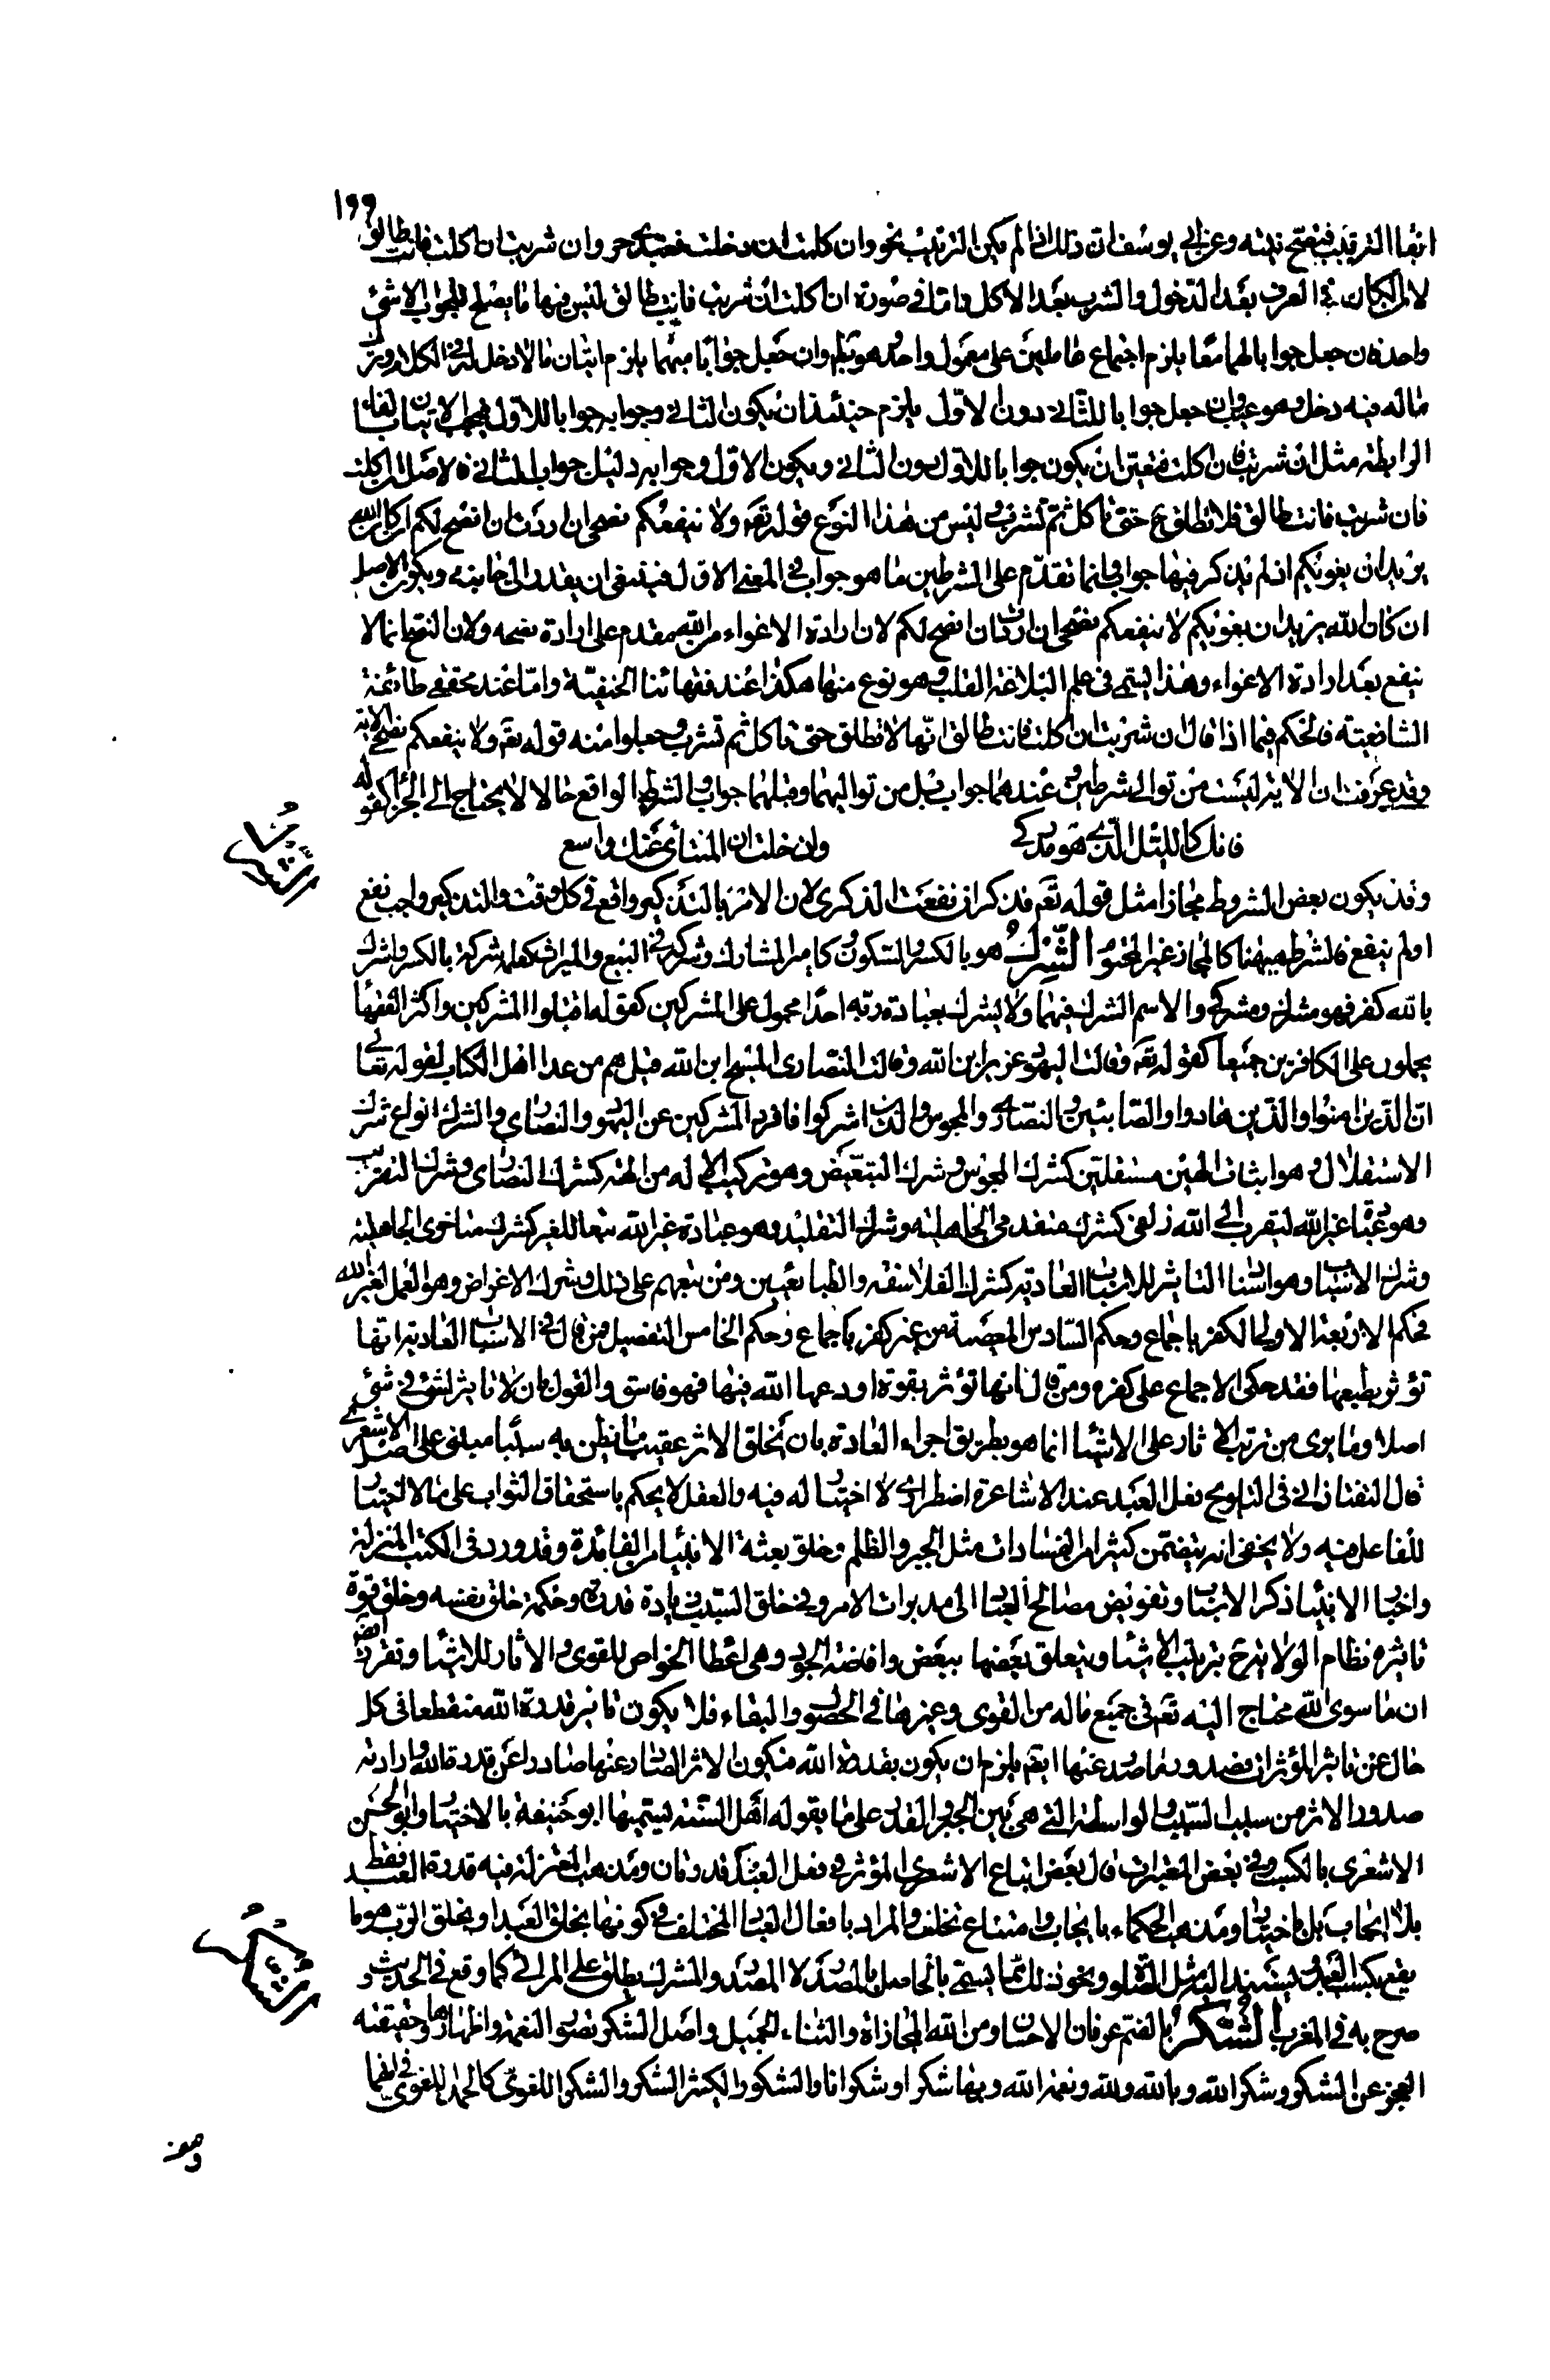 ١٩٩
انفا الترتيب فيفتح نيته وعن ابي يوسف ان ذلك اذا لم يكن الترتيب نحو وان كلمت ان دخلت فعبدي حر وان شربت ان اكلت فانت طالق
لان الكلام في العرف بعد الدخول والشرب بعد الاكل واما في صورة ان اكلت ان شربت فانت طالق ليس فيها ما يصلح للجواب الا شئ
واحد فان جعل جوابا لهما معا يلزم اجتماع عاملين على معمول واحد وهو باطل وان جعل جوابا مبهما يلزم اتيان ما لا دخل له في الكلام وترك
ما له فيه دخل وهو عيب وان جعل جوابا للثاني دون الاول يلزم حينئذ ان يكون الثاني وجوابه جوابا للاول فيجب الاتيان بالفاء
الرابطة مثل ان شربت فان اكلت فتعين ان يكون جوابا للاول دون الثاني ويكون الاول وجوابه دليل جواب الثاني فالاصل ان اكلت
فان شربت فانت طالق فلا تطلق حتى تأكل ثم تشرب وليس من هذا النوع قوله تعم ولا ينفعكم نصحي ان اردت ان انصح لكم ان كان الله
يريد ان يغويكم اذ لم يذكر فيها جواب وانما تقدم على الشرطين ما هو جواب في المعنى الاول فينبغي ان يقدر الى جانبه ويكون الاصل
ان كان الله يريد ان يغويكم لا ينفعكم نصحي ان اردت ان انصح لكم لان ارادة الاغواء من الله مقدم على ارادة نصحه ولان النصح انما لا
ينفع بعد ارادة الاغواء وهذا يسمى في علم البلاغة القلب وهو نوع منها هكذا عند فقهائنا الحنفية واما عند محققي طائفة
الشافعية فالحكم فيما اذا قال ان شربت ان اكلت فانت طالق انها لا تطلق حتى تأكل ثم تشرب وجعلوا منه قوله تعم ولا ينفعكم نصحي الاية
وقد عرفت ان الاية ليست من توالي شرطين وعندهما جواب قبل من تواليهما وقبلهما جواب والشرط الواقع حالا لا يحتاج الى الجزاء كقوله
فانك كالليل الذي هو مدركي وان خلت ان المنتأى عنك واسع
وقد يكون بعض الشروط مجازا مثل قوله تعم فذكر ان نفعت الذكرى لان الامر بالتذكير واقع في كل وقت والتذكير واجب نفع
او لم ينفع فالشرط ههنا كالمجاز غير المحتوم الشرك هو بالكسر والسكون كامير المشارك وشركه في البيع والميراث كعلمه شركة بالكسر واشرك
بالله كفر فهو مشرك ومشركي والاسم الشرك فيهما ولا يشرك بعبادة ربه احدا محمول على المشركين كقوله اقتلوا المشركين واكثر الفقهاء
يحملون على الكافرين جميعا كقوله تعم وقالت اليهود عزير ابن الله وقالت النصارى المسيح ابن الله قيل هم من عدا اهل الكتاب لقوله تعالى
ان الذين امنوا والذين هادوا والصابئين والنصارى والمجوس والذين اشركوا فافرد المشركين عن اليهود والنصارى والشرك انواع شرك
الاستقلال وهو اثبات الهين مستقلين كشرك المجوس وشرك التبعيض وهو تركيب الاله من الهة كشرك النصارى وشرك التقريب
وهو عبادة غير الله ليقرب الى الله زلفى كشرك متقدمي الجاهلية وشرك التقليد وهو عبادة غير الله تبعا للغير كشرك متاخري الجاهلية
وشرك الاسباب وهو اسناد التاثير للاسباب العادية كشرك الفلاسفة والطبائعيين ومن تبعهم على ذلك وشرك الاغراض وهو العمل لغير الله
فحكم الاربعة الاولى الكفر باجماع وحكم السادس المعصية من غير كفر باجماع وحكم الخامس التفصيل فمن قال في الاسباب العادية انها
تؤثر بطبعها فقد حكى الاجماع على كفره ومن قال انها تؤثر بقوة اودعها الله فيها فهو فاسق والقول بان لا تاثير لشئ في شئ
اصلا وما يرى من ترتب الاثار على الاشياء انما هو بطريق اجراء العادة بان يخلق الاثر عقيب ما يظن به سببا مبني على اصل الاشعري
قال التفتازاني في التلويح فعل العبد عند الاشاعرة اضطراري لا اختيار له فيه والعقل لا يحكم باستحقاق الثواب على ما لا اختيار
للفاعل فيه ولا يخفى انه يتضمن كثيرا من الفسادات مثل الجبر والظلم وخلو بعثة الانبياء من الفائدة وقد ورد في الكتب المنزلة
واخبار الانبياء ذكر الاسباب وتفويض مصالح العباد الى مدبرات الامر وفي خلق السبب زيادة قدرة وحكمة خلق نفسه وخلق قوة
تاثيره نظام الولا يترجح بترتيب الاشياء ويتعلق بعضها ببعض وافاضة الجود وهي اعطاء الخواص للقوى والاثار للاشياء وتقرر ايضا
ان ما سوى الله محتاج اليه تعم في جميع ما له من القوى وغيرها في الحصول والبقاء فلا يكون تاثير قدرة الله منقطعا في كل
حال عن تاثير المؤثر ان فصدور ما صدر عنها ايضا يلزم ان يكون بقدرة الله فيكون الاثر الصادر عنها صادرا عن قدرة الله وارادته
صدور الاثر من سبب السبب والواسطة التي هي بين الجبر والقدر على ما يقوله اهل السنة يسميها ابو حنيفة بالاختيار وابو الحسن
الاشعري بالكسب وفي بعض المعتبرات قال بعض اتباع الاشعري المؤثر في فعل العبد قدرتان ومذهب المعتزلة فيه قدرة العبد فقط
بلا ايجاب بل باختيار ومذهب الحكماء بايجاب وامتناع تخلف والمراد بافعال العباد المختلف في كونها بخلق العبد او بخلق الرب هو ما
يقع بكسب العبد ويسند اليه مثل الصلاة ونحو ذلك مما يسمى بالحاصل بالمصدر لا المصدر والمشرك يطلق على المرائي كما وقع في الحديث و
صرح به في المغرب الشكر بالضم عرفان الاحسان ومن الله المجازاة والثناء الجميل واصل الشكر تصور النعمة واظهارها وحقيقته
العجز عن الشكر وشكر الله وبالله ولله ونعمة الله وبها شكرا وشكورا وشكرانا والشكور الكثير الشكر والشكر اللغوي كالحمد اللغوي في انهما
الشرك
الشكر